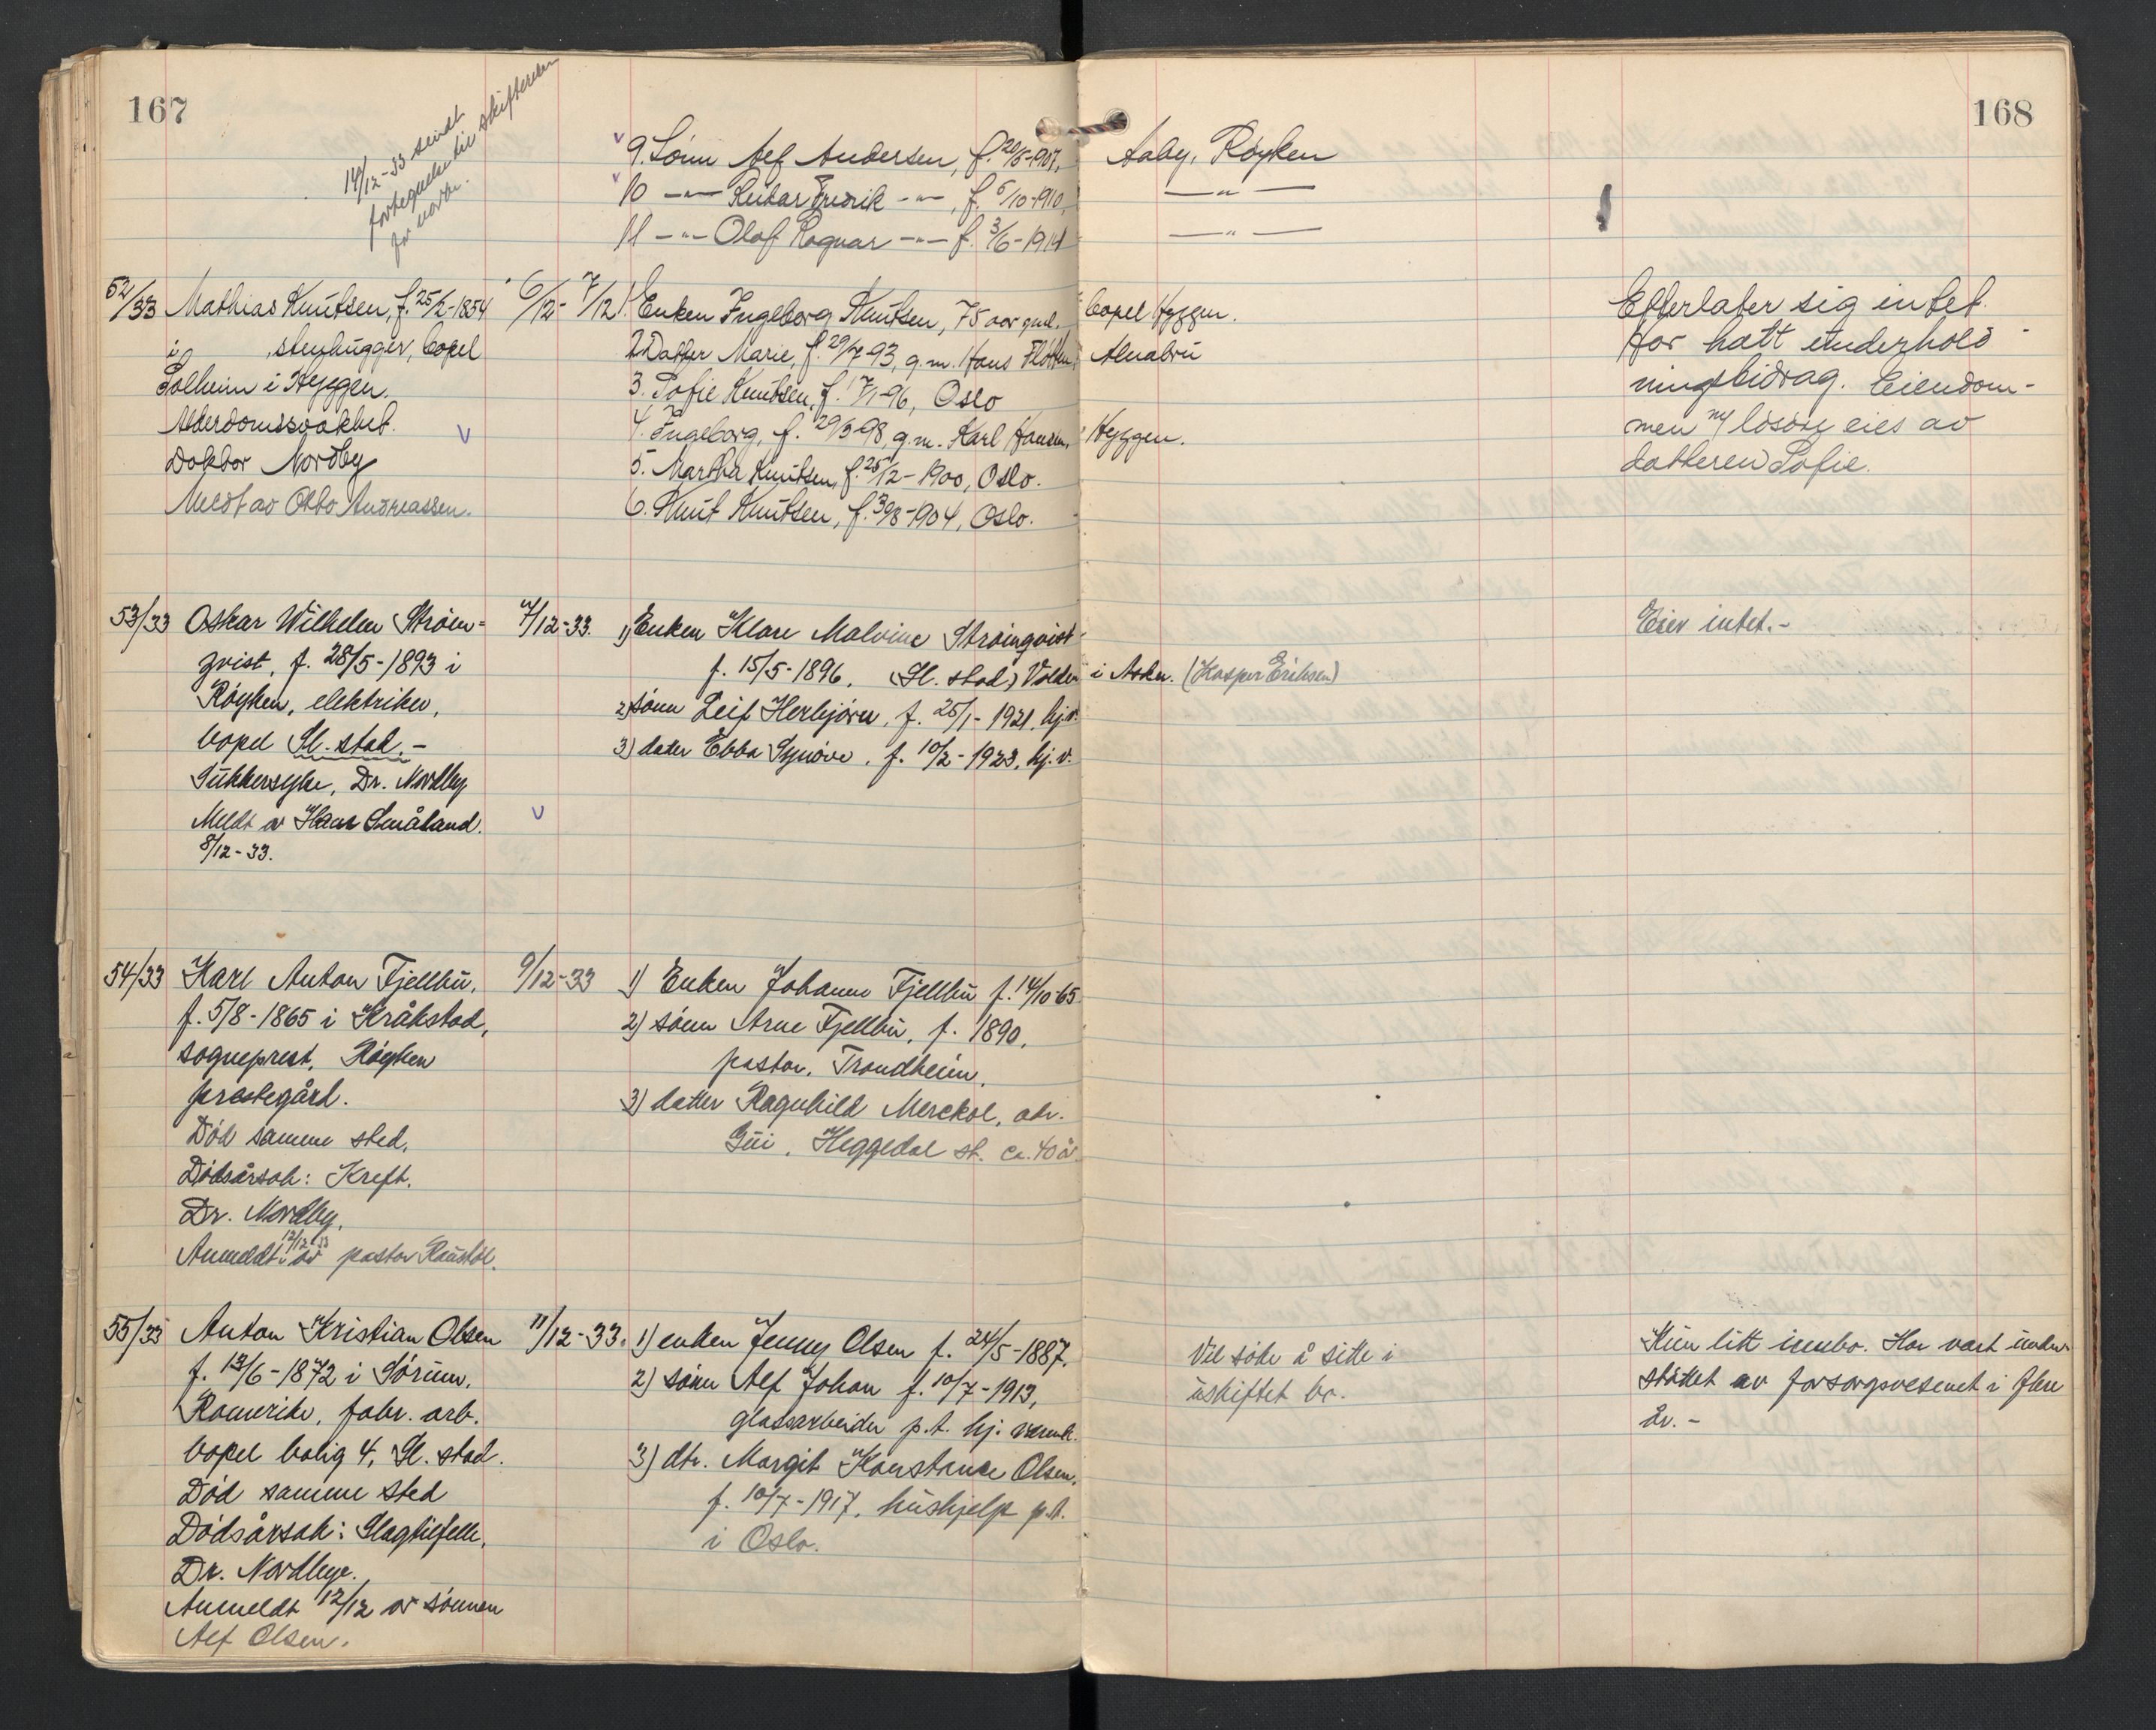 167
168
14/12-33 sendt
fortegnelse til skifteretten
9. Sönn Alf Andersen, f. 20/5-1907, Aaby, Röyken
10 —"— Reidar Fredrik —"—, f. 5/10-1910, —"—
11 —"— Olaf Ragnar —"— f. 3/6-1914 —"—
52/33 Mathias Knutsen, f. 25/2-1854
i , stenhugger, bopel
Solheim i Hyggen.
Alderdomssvakhet.
Doktor Nordby
Meldt av Otto Andreassen.
6/12- 7/12
1. Enken Ingeborg Knutsen, 75 aar gml. bopel Hyggen.
2. Datter Marie, f. 29/7-93, g.m. Hans Alnabru
3. Sofie Knutsen, f. 17/1-96, Oslo
4. Ingeborg, f. 29/3-98, g.m. Karl Hansen, Hyggen.
5. Martha Knutsen, f. 25/12-1900, Oslo.
6. Knut Knutsen, f. 30/8-1904, Oslo.
Efterlater sig intet.
Har hatt underhold-
ningsbidrag. Eiendom-
men m/ lösöre eies av
datteren Sofie.
53/33 Oskar Wilhelm Ström-
qvist, f. 28/5-1893 i
Röyken, elektriker,
bopel Sl. stad.-
Sukkersyke, Dr. Nordby
Meldt av Hans Småland.
8/12-33.
7/12-33.
1) Enken Klara Malvine Strömqvist
f. 15/5-1896. (Sl. stad) Volden i Asker. (Kasper Eriksen)
2) sönn Leif Herbjörn, f. 25/1-1921. hj.v.
3) dater Ebba Synöve, f. 10/2-1923. hj.v.
Eier intet.-
54/33 Karl Anton Fjellbu,
f. 5/8-1865 i Kråkstad,
sogneprest, Röyken
prestegård.
Död samme sted.
Dödsårsak: Kreft.
Dr. Nordby.
Anmeldt 12/12 33 av pastor Raustöl.
9/12-33
1) Enken Johanne Fjellbu f. 14/10-65
2) sönn Arne Fjellbu, f. 1890,
pastor, Trondheim.
3) datter Ragnhild Merckol, adr.
Gui, Heggedal st. ca. 40 år
55/33 Anton Kristian Olsen
f. 13/6-1872 i Sörum,
Romerike, fabr. arb.
bopel bolig 4, Sl. stad.
Död samme sted
Dödsårsak: Slagtilfelle.
Dr. Nordbye.
Anmeldt 12/12 av sönnen
Alf Olsen.
11/12-33.
1) enken Jenny Olsen f. 24/5-1887,
2) sönn Alf Johan f. 10/7-1913,
glassarbeider p.t. hj. værende
3) dtr. Margit Konstance Olsen,
f. 10/7-1917, hushjelp p.t.
i Oslo.
Vil söke å sitte i
uskiftet bo.
Kun litt innbo. Har vært under-
stöttet av forsorgsvesenet i flere
år.-